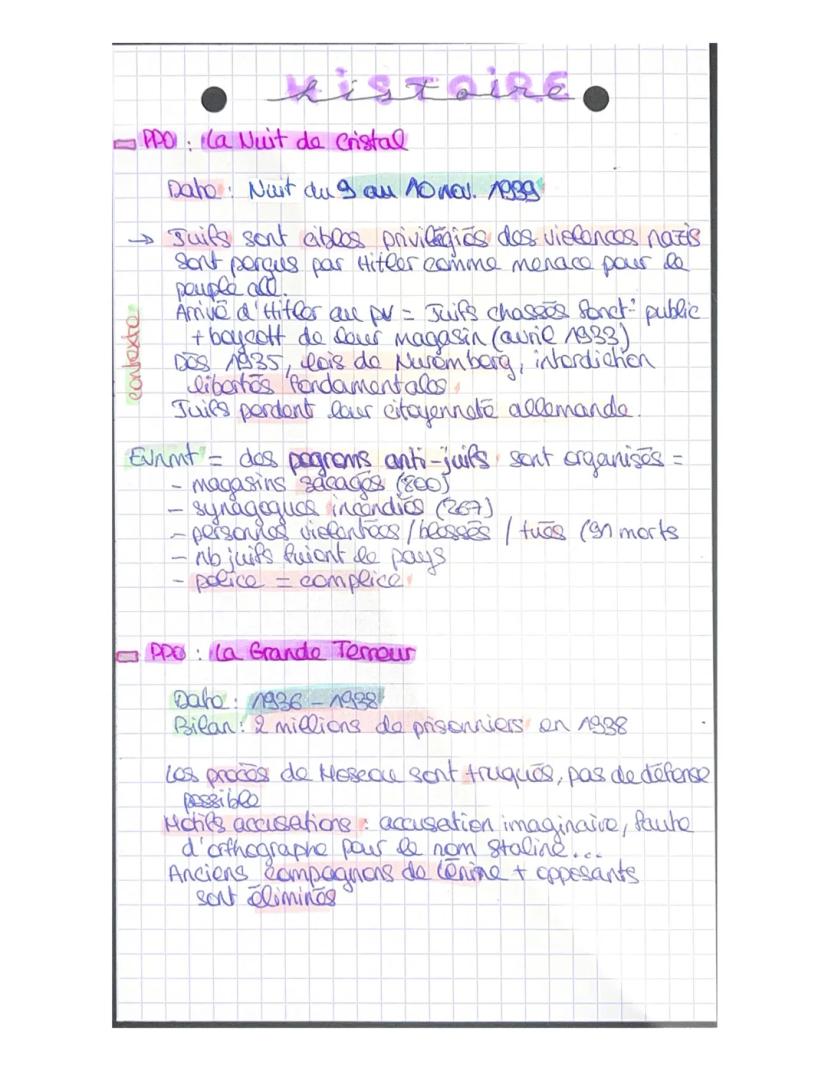 Histoire
PPO : La Nuit de Cristal
Date : Nuit du 9 au 10 nov. 1939
→ Juifs sont cibles privilégiés des violences nazis
sont perçus par Hitler comme menace pour le
peuple all.
Arrivé d'Hitler au pv = Juifs chassés fonct° public
+ boycott de leur magasin (avril 1933)
contexte
Dès 1935, lois de Nuremberg, interdiction
libertés fondamentales
Juifs perdent leur citoyenneté allemande.
Evnmt = des pogroms anti-juifs sont organisés =
- magasins sacagés (800)
- synagogues incendiés (267)
- personnes violentées / blessés / tués (91 morts
- nb juifs fuient le pays
- police = complice
PPO : La Grande Terreur
Date : 1936 - 1938
Bilan : 2 millions de prisonniers en 1938
Les procès de Moscou sont truqués, pas de défense
possible
Motifs accusations : accusation imaginaire, faute
d'orthographe pour le nom Staline...
Anciens compagnons de Lénine + opposants
sont éliminés